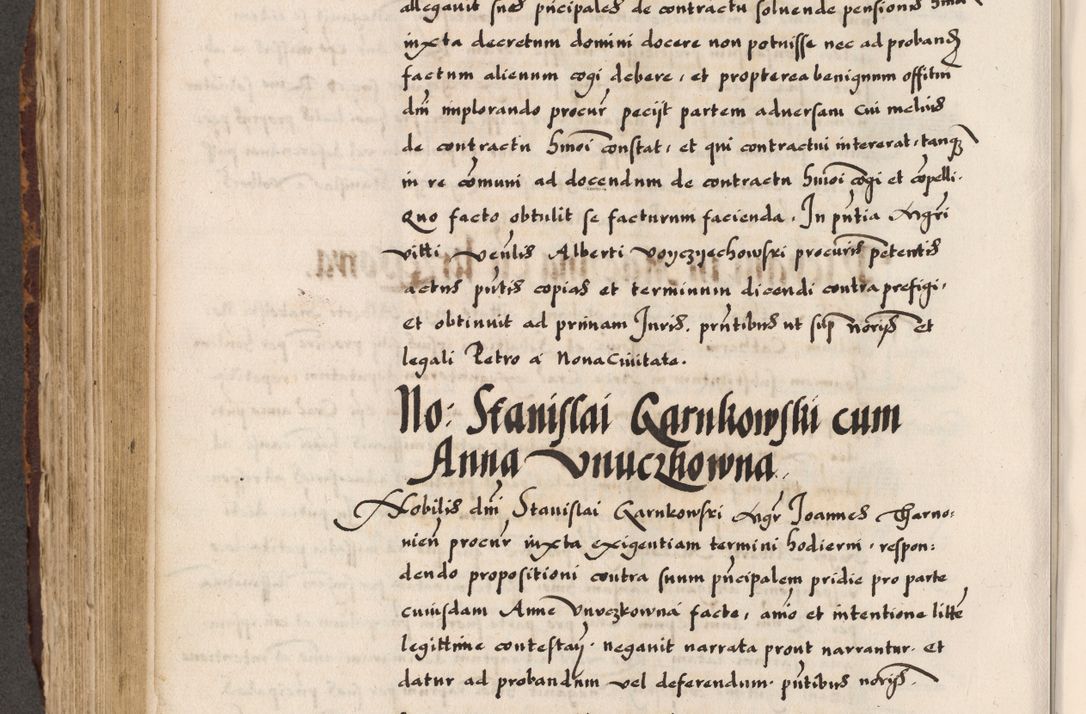 allegavit suos prīcipales de contractu soluende pensionis hmōi
iuxta decretum domini docere non potuisse nec ad probandū
factum alienum cogi debere, et propterea benignum offitiū
dnī implorando procur peciit partem adversam cui melius
de contractu hmōi constat, et qui contractui intererat, tanqȝ
in re cōmuni ad docendum de contractu hmōi cogi et cōpelli.
Quo facto obtulit se facturum facienda. In pñtia Mgri
vitti Venlis Alberti Voyczyechowski procuris petentis
actus pñtis copias et terminum dicendi contra prefigi,
et obtinuit ad primam Iuris. prñtibus ut sup noriis et
legali Petro a Nova Civitate.
No: Stanislai Garnkowski cum
Anna Vnuczkowna
Nobilis dnī Stanislai Garnkowski Mgr Joannes Tharno:
vien procur iuxta exigentiam termini hodierni, respon:
dendo propositioni contra suum prīcipalem pridie pro parte
cuiusdam Anne Vnuczkowna facte, aīo et intentione litte
legittime contestaṅ, negavit narrata prout narrantur. et
datur ad probandum vel deferendum. pñtibus noriis.